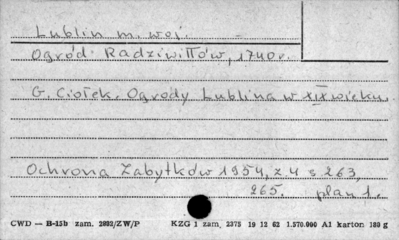 Lublin m. woj.
Ogród Radziwiłłów, 1740 r.
G. Ciołek. Ogrody Lublina w XIX wieku.
Ochrona Zabytków 1954, z 4 s 263
265. plan 1.
CWD — B-15b zam. 2892/ZW/P KZG 1 zam. 2375 19 12 62 1.570.000 A1 karton 180 g